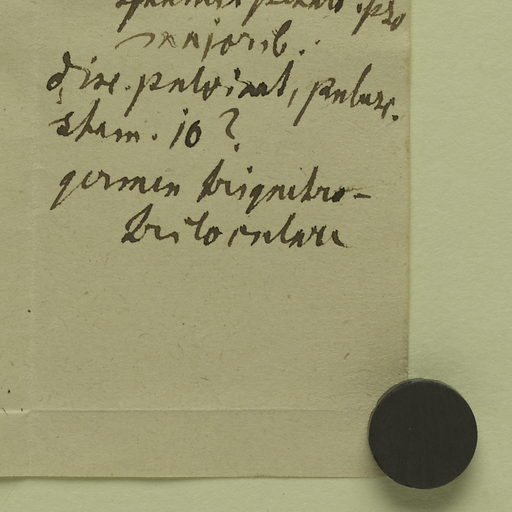 majorib.
disc. pulvinat, pubesc.
stam. 10?
germen triquetro-
triloculare